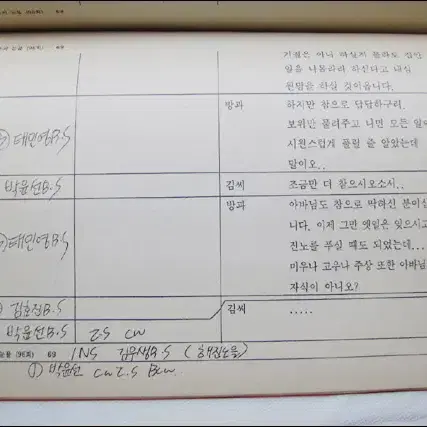 기절은 아니 하실지 몰라도 집안
일을 나몰라라 하신다고 내심
원망을 하실 것이옵니다.
방과 하지만 참으로 답답하구려.
보위만 물려주고 나면 모든 일이
시원스럽게 풀릴 줄 알았는데
말이오..
태민영B.S
박윤선B.S 김씨 조금만 더 참으시오소서..
방과 아바님도 참으로 딱하신 분이십
니다. 이제 그만 옛일은 잊으시고
진노를 푸실 때도 되었는데...
태민영B.S
미우나 고우나 주상 또한 아바님
자식이 아니오?
B.S 김씨 .....
박윤선B.S Z.S CW
(96회) 69 INS B.S
① 박윤선 CW Z.S